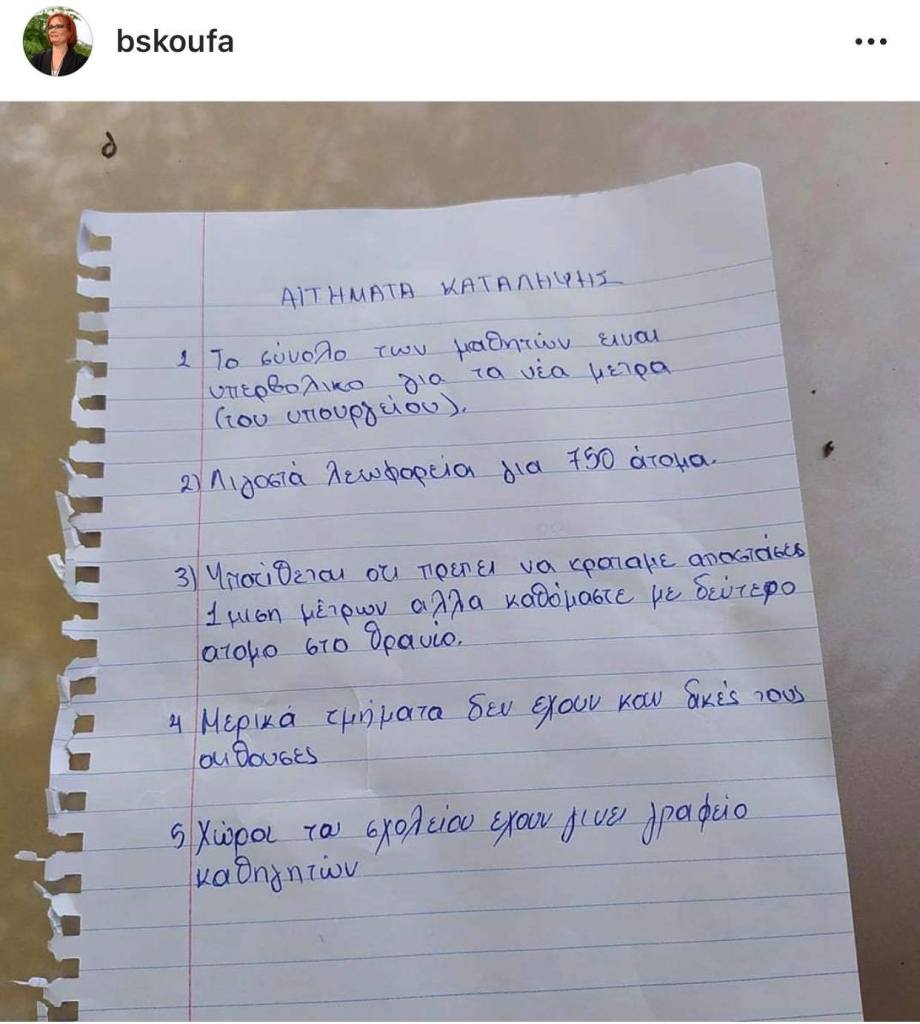 bskoufa
ΑΙΤΗΜΑΤΑ ΚΑΤΑΛΗΨΗΣ
1 Το σύνολο των μαθητών ειναι
υπερβολικο για τα νέα μετρα
(του υπουργείου).
2) Λιγοστά λεωφορεία για 750 άτομα.
3) Υποτίθεται οτι πρεπει να κραταμε αποστάσεις
1μιση μέτρων αλλα καθόμαστε με δεύτερο
ατομο στο θρανίο.
4 Μερικά τμήματα δεν εχουν καν δικές τους
αιθουσες
5 Χώροι του σχολείου εχουν γινει γραφείο
καθηγητών